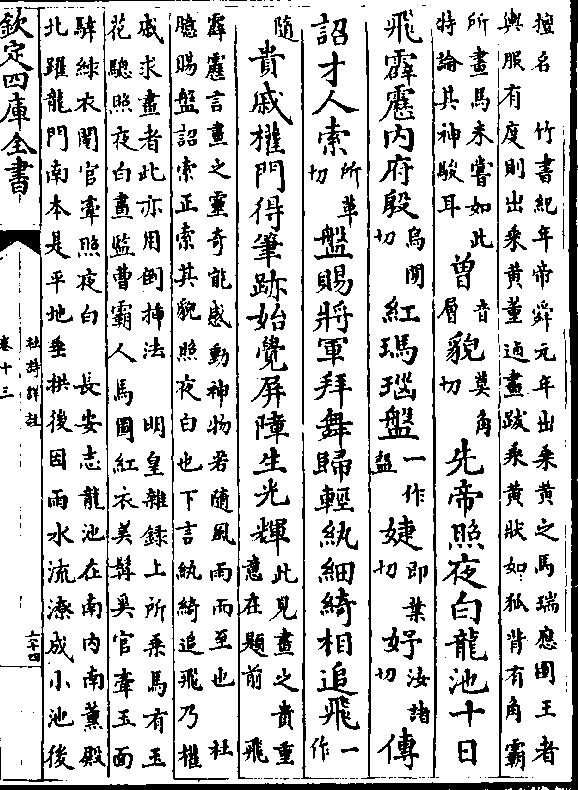 擅名　竹書紀年帝舜元年出乗黄之馬瑞應圖王者
輿服有度則出乗黄董逌畫跋乗黄狀如狐背有角霸
所畫馬未嘗如此
特論其神駿耳
曽
音
層
貌
莫角
切
先帝照夜白龍池十日
飛霹靂内府殷
烏閒
切
紅瑪瑙盤
一作
盌
婕
即葉
切
妤
汝諸
切
傳
詔才人索
所革
切
盤賜將軍拜舞歸輕紈細綺相追飛
一
作
隨
貴戚權門得筆跡始覺屏障生光輝
此見畫之貴重
意在題前　飛
霹靂言畫之靈竒能感動神物若隨風雨而至也　杜
臆賜盤詔索正索其貌照夜白也下言紈綺追飛乃權
戚求畫者此亦用倒挿法　明皇雜録上所乘馬有玉
花驄照夜白畫監曹霸人馬圖紅衣美髯奚官牽玉面
騂綠衣閹官牽照夜白　長安志龍池在南内南薰殿
北躍龍門南本是平地垂拱後因雨水流潦成小池後
欽定四庫全書
杜詩詳註
卷十三
二十四